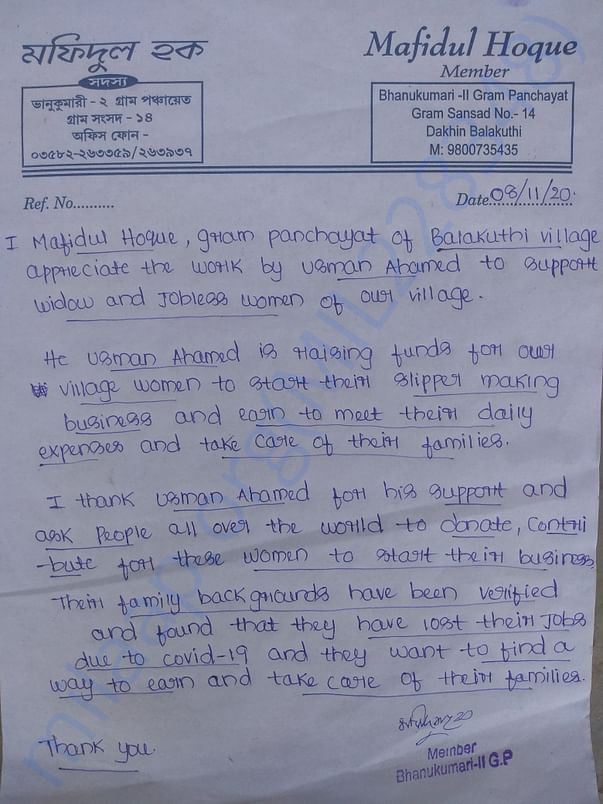 মফিদুল হক
সদস্য
ভানুকুমারী - ২ গ্রাম পঞ্চায়েত
গ্রাম সংসদ - ১৪
অফিস ফোন -
০৩৫৮২-২৬৩৩৫৯/২৬৩৯৩৭
Mafidul Hoque
Member
Bhanukumari -II Gram Panchayat
Gram Sansad No.- 14
Dakhin Balakuthi
M: 9800735435
Ref. No..........
Date 08/11/20.
I Mafidul Hoque, gram panchayat of Balakuthi village
appreciate the work by Usman Ahamed to support
widow and Jobless women of our village.
He Usman Ahamed is raising funds for our
village women to start their slipper making
business and earn to meet their daily
expenses and take care of their families.
I thank Usman Ahamed for his support and
ask people all over the world to donate, contri
-bute for these women to start their business
Their family backgrounds have been verified
and found that they have lost their Jobs
due to covid-19 and they want to find a
way to earn and take care of their families.
Thank you.
Member
Bhanukumari-II G.P